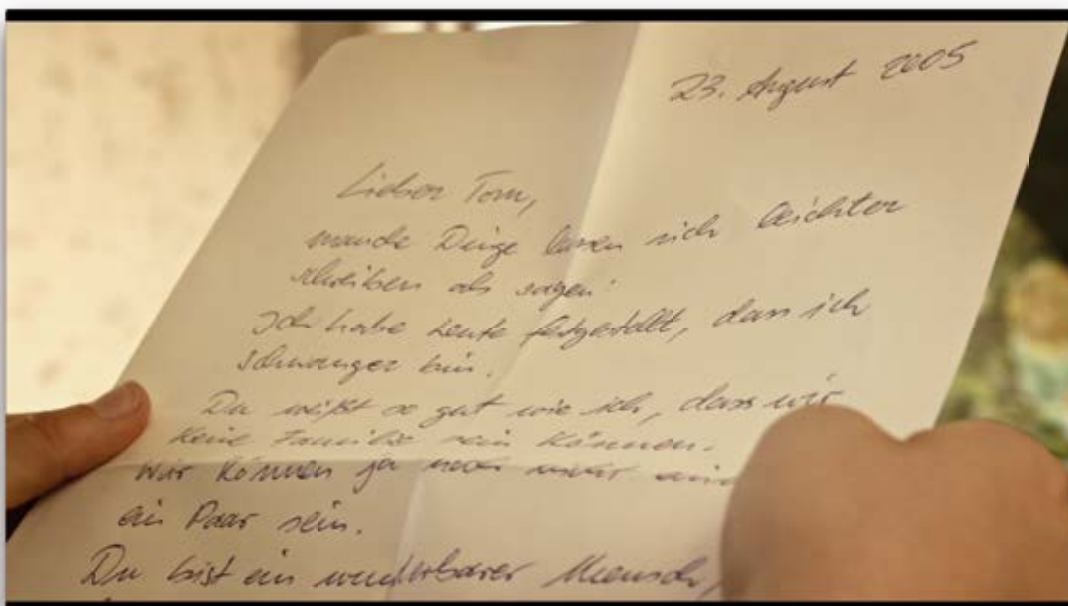 23. August 2005
Lieber Tom,
manche Dinge lassen sich leichter
schreiben als sagen:
Ich habe heute festgestellt, dass ich
schwanger bin.
Du weißt so gut wie ich, dass wir
keine Familie sein können.
Wir können ja noch nicht
ein Paar sein.
Du bist ein wunderbarer Mensch,